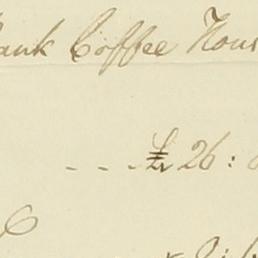 ank Coffee Hous
- - - £ 26 :